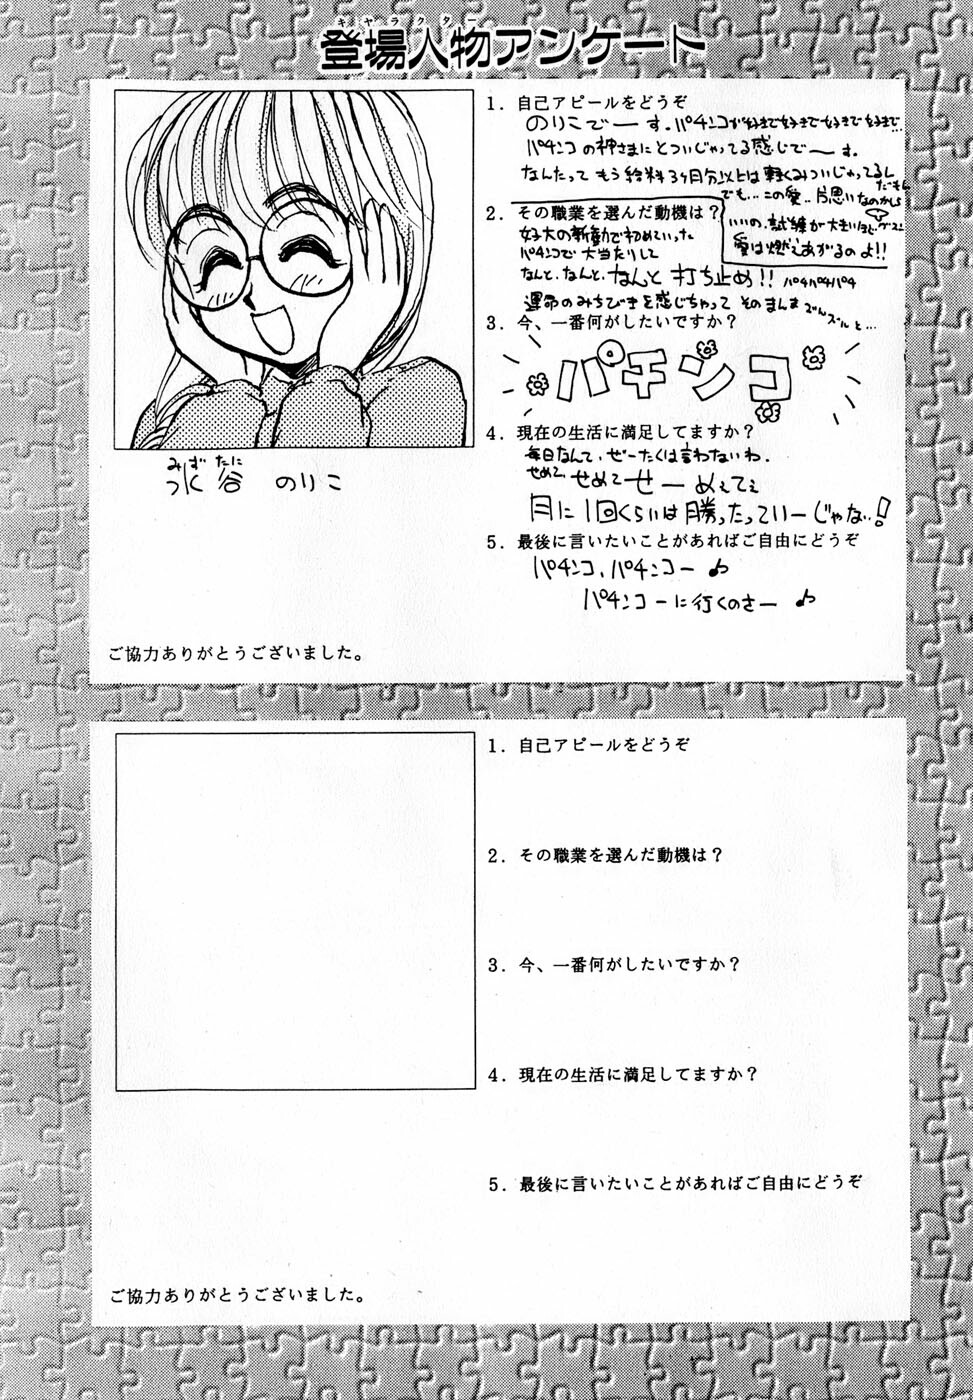 キャラクター
登場人物アンケート
1. 自己アピールをどうぞ
のりこでーす。パチンコが好きで好きで好きで好きで…
パチンコの神さまにとついじゃってる感じでーす。
なんたって もう給料3ヶ月分以上は軽くみついじゃってるんだもん
でも… この愛.. 片思いなのかしら
いいの、試練が大きいほど
愛は燃えあがるのよ!!
2. その職業を選んだ動機は?
パチンコで大当たりして
なんと、なんと、なんと 打ち止め!! パチパチパチパチ
運命のみちびきを感じちゃって そのまんま ズルズルと…
3. 今、一番何がしたいですか?
パチンコ
4. 現在の生活に満足してますか?
毎日なんて、ぜーたくは言わないわ.
せめて せめて せーめぇてぇ
月に1回くらいは勝ったっていーじゃない!
5. 最後に言いたいことがあればご自由にどうぞ
パチンコ、パチンコー♪
パチンコーに行くのさー ♪
みずたに
水谷 のりこ
ご協力ありがとうございました。
1. 自己アピールをどうぞ
2. その職業を選んだ動機は?
3. 今、一番何がしたいですか?
4. 現在の生活に満足してますか?
5. 最後に言いたいことがあればご自由にどうぞ
ご協力ありがとうございました。